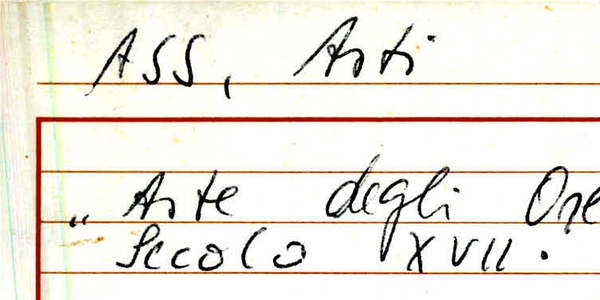 ASS, Arti
„ Arte degli
Secolo XVII.